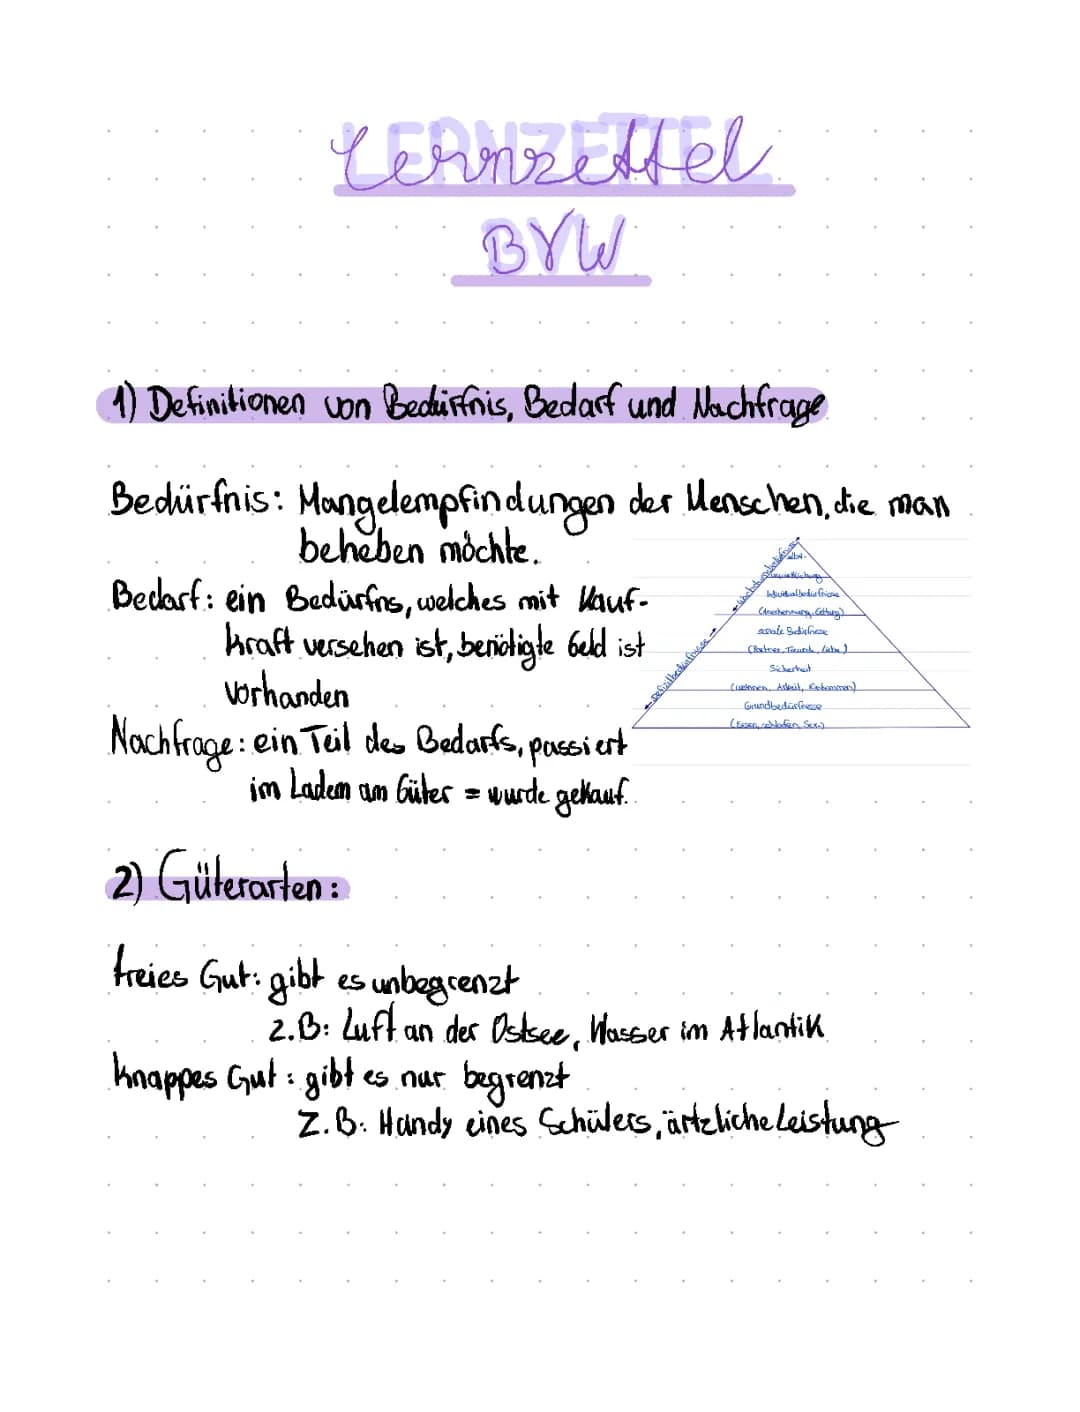 Lernzettel
BVW
1) Definitionen von Bedürfnis, Bedarf und Nachfrage
Bedürfnis: Mangelempfindungen der Menschen, die man
beheben möchte.
Bedarf: ein Bedürfns, welches mit Kauf-
kraft versehen ist, benötigte Geld ist
vorhanden
Nachfrage: ein Teil des Bedarfs, passiert
im Ladem am Güter = wurde gekauf.
Selbst-
verwirklichung
Individualbedürfnisse
(Anerkennung, Geltung)
soziale Bedürfnisse
(Partner, Freunde, Liebe)
Sicherheit
(wohnen, Arbeit, Einkommen)
Grundbedürfnisse
(Essen, schlafen, Sex,)
Wachstumsbedürfnisse
Defizitbedürfnisse
2) Güterarten:
freies Gut: gibt es unbegrenzt
z.B: Luft an der Ostsee, Wasser im Atlantik
knappes Gut: gibt es nur begrenzt
Z.B: Handy eines Schülers, ärtzliche Leistung